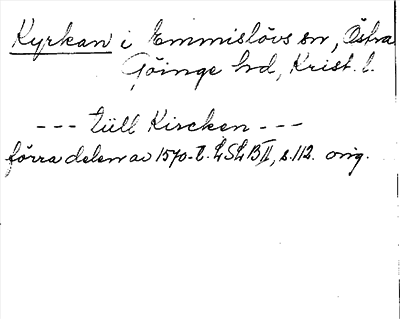 Kyrkan i Emmislövs sn, Östra
Göinge hd, Krist. l.
--- tüll Kircken ---
förra delen av 1570-t. LSLB II, s.112. orig.